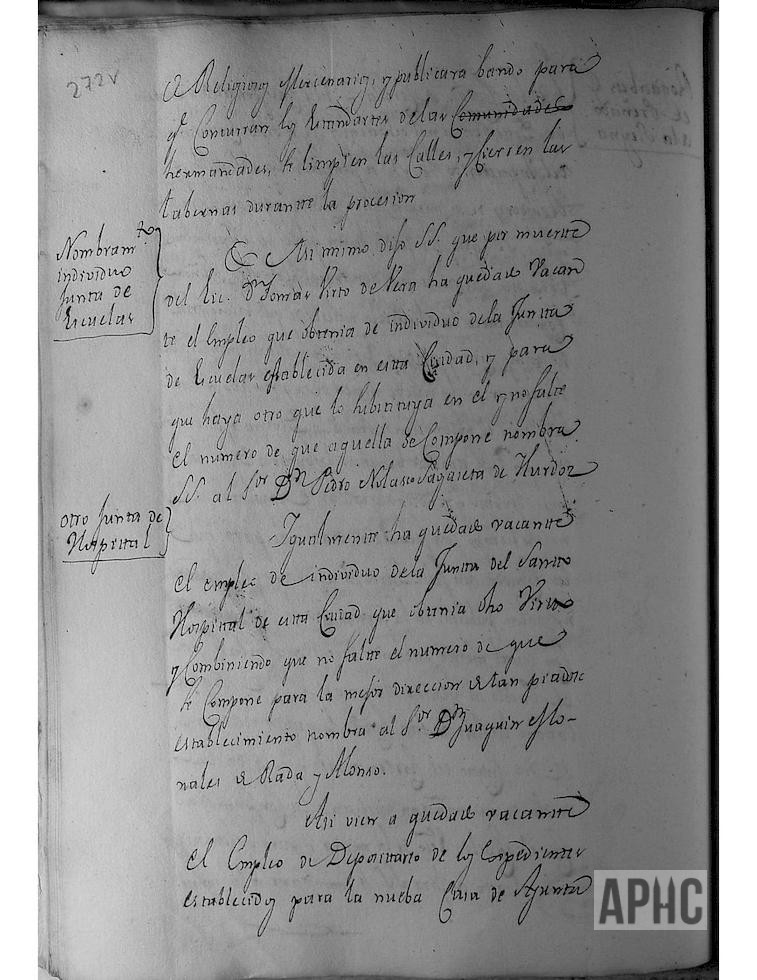 272v
de Religiosos Mercenarios, y publicara bando para
qe Concurran los Estandartes de las Comunidades
hermandades, se limpien las Calles, y Cierren las
tabernas durante la procesion
Nombramto
individuo
Junta de
Escuelas
Asi mimo dijo SS. que por muerte
del Lic. Dn Tomas Virto de Vera ha quedado Vacan
te el Empleo que obtenia de individuo de la Junta
de Escuelas establecida en esta Ciudad, y para
que haya otro que lo substituya en el y no falte
el numero de que aquella se Compone nombra
SS. al Sor Dn Pedro Nolasco Sagaseta de Ylurdoz
otro Junta de
Hospital
Igualmente ha quedado vacante
el empleo de individuo de la Junta del Santo
Hospital de esta Ciudad que obtenia dho Virto
y Combiniendo que no falte el numero de que
se Compone para la mejor direccion de tan piadoso
establecimiento nombra al Sor Dn Juaquin Mo-
nales de Rada y Alonso.
Asi vien a quedado vacante
el Empleo de Depositario de los Expedientes
establecidos para la nueba Casa de Ayunta
APHC